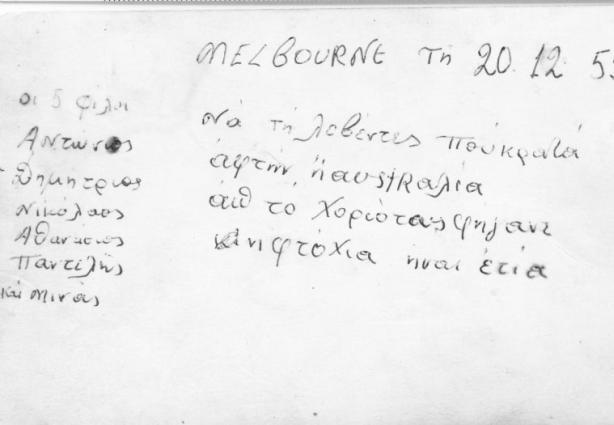 MELBOURNE τη 20.12.5
οι 5 φίλοι
Αντώνιος
Δημητριος
Νικόλαος
Αθανάσιος
Παντελής
και Μινάς
νά τη λεβέντες πούκρατά
άφτήν ή αυstRαλία
άπ τό χοριότας φήγανε
κη φτόχια ηναι έτία